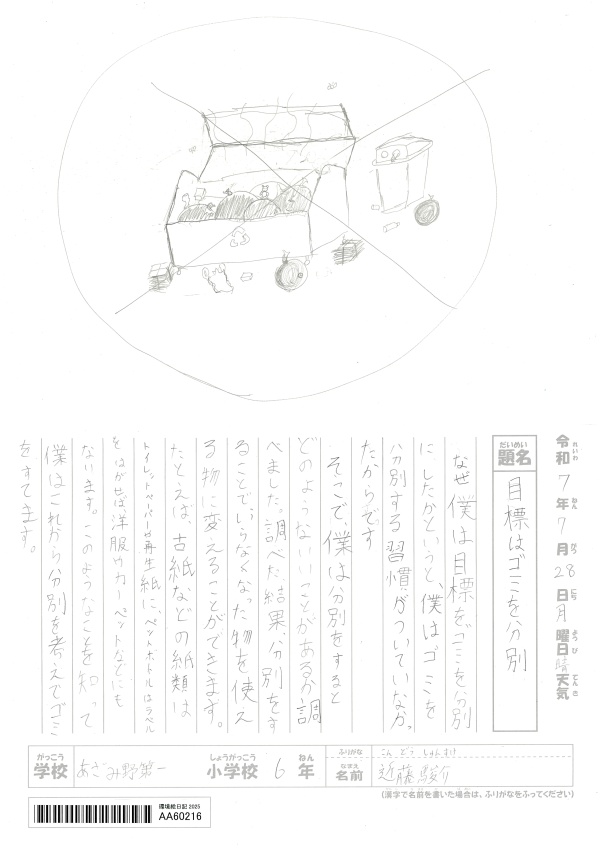 令和7年7月28日月曜日晴天気
れいわ ねん がつ にち ようび てんき
だいめい
題名 目標はゴミを分別
なぜ僕は目標をゴミを分別
にしたかというと、僕はゴミを
分別する習慣がついていなかっ
たからです
そこで、僕は分別をすると
どのようないいことがあるか調
べました。調べた結果、分別をす
ることでいらなくなった物を使え
る物に変えることができます。
たとえば、古紙などの紙類は
トイレットペーパーや再生紙に、ペットボトルはラベル
をはがせば洋服やカーペットなどにも
ないます。このようなことを知って
僕はこれから分別を考えてゴミ
をすてます。
がっこう
学校 あざみ野第一
しょうがっこう
小学校 6 ねん 年
ふりがな こんどう しゅんすけ
なまえ
名前 近藤駿介
(漢字で名前を書いた場合は、ふりがなをふってください)
環境絵日記 2025
AA60216